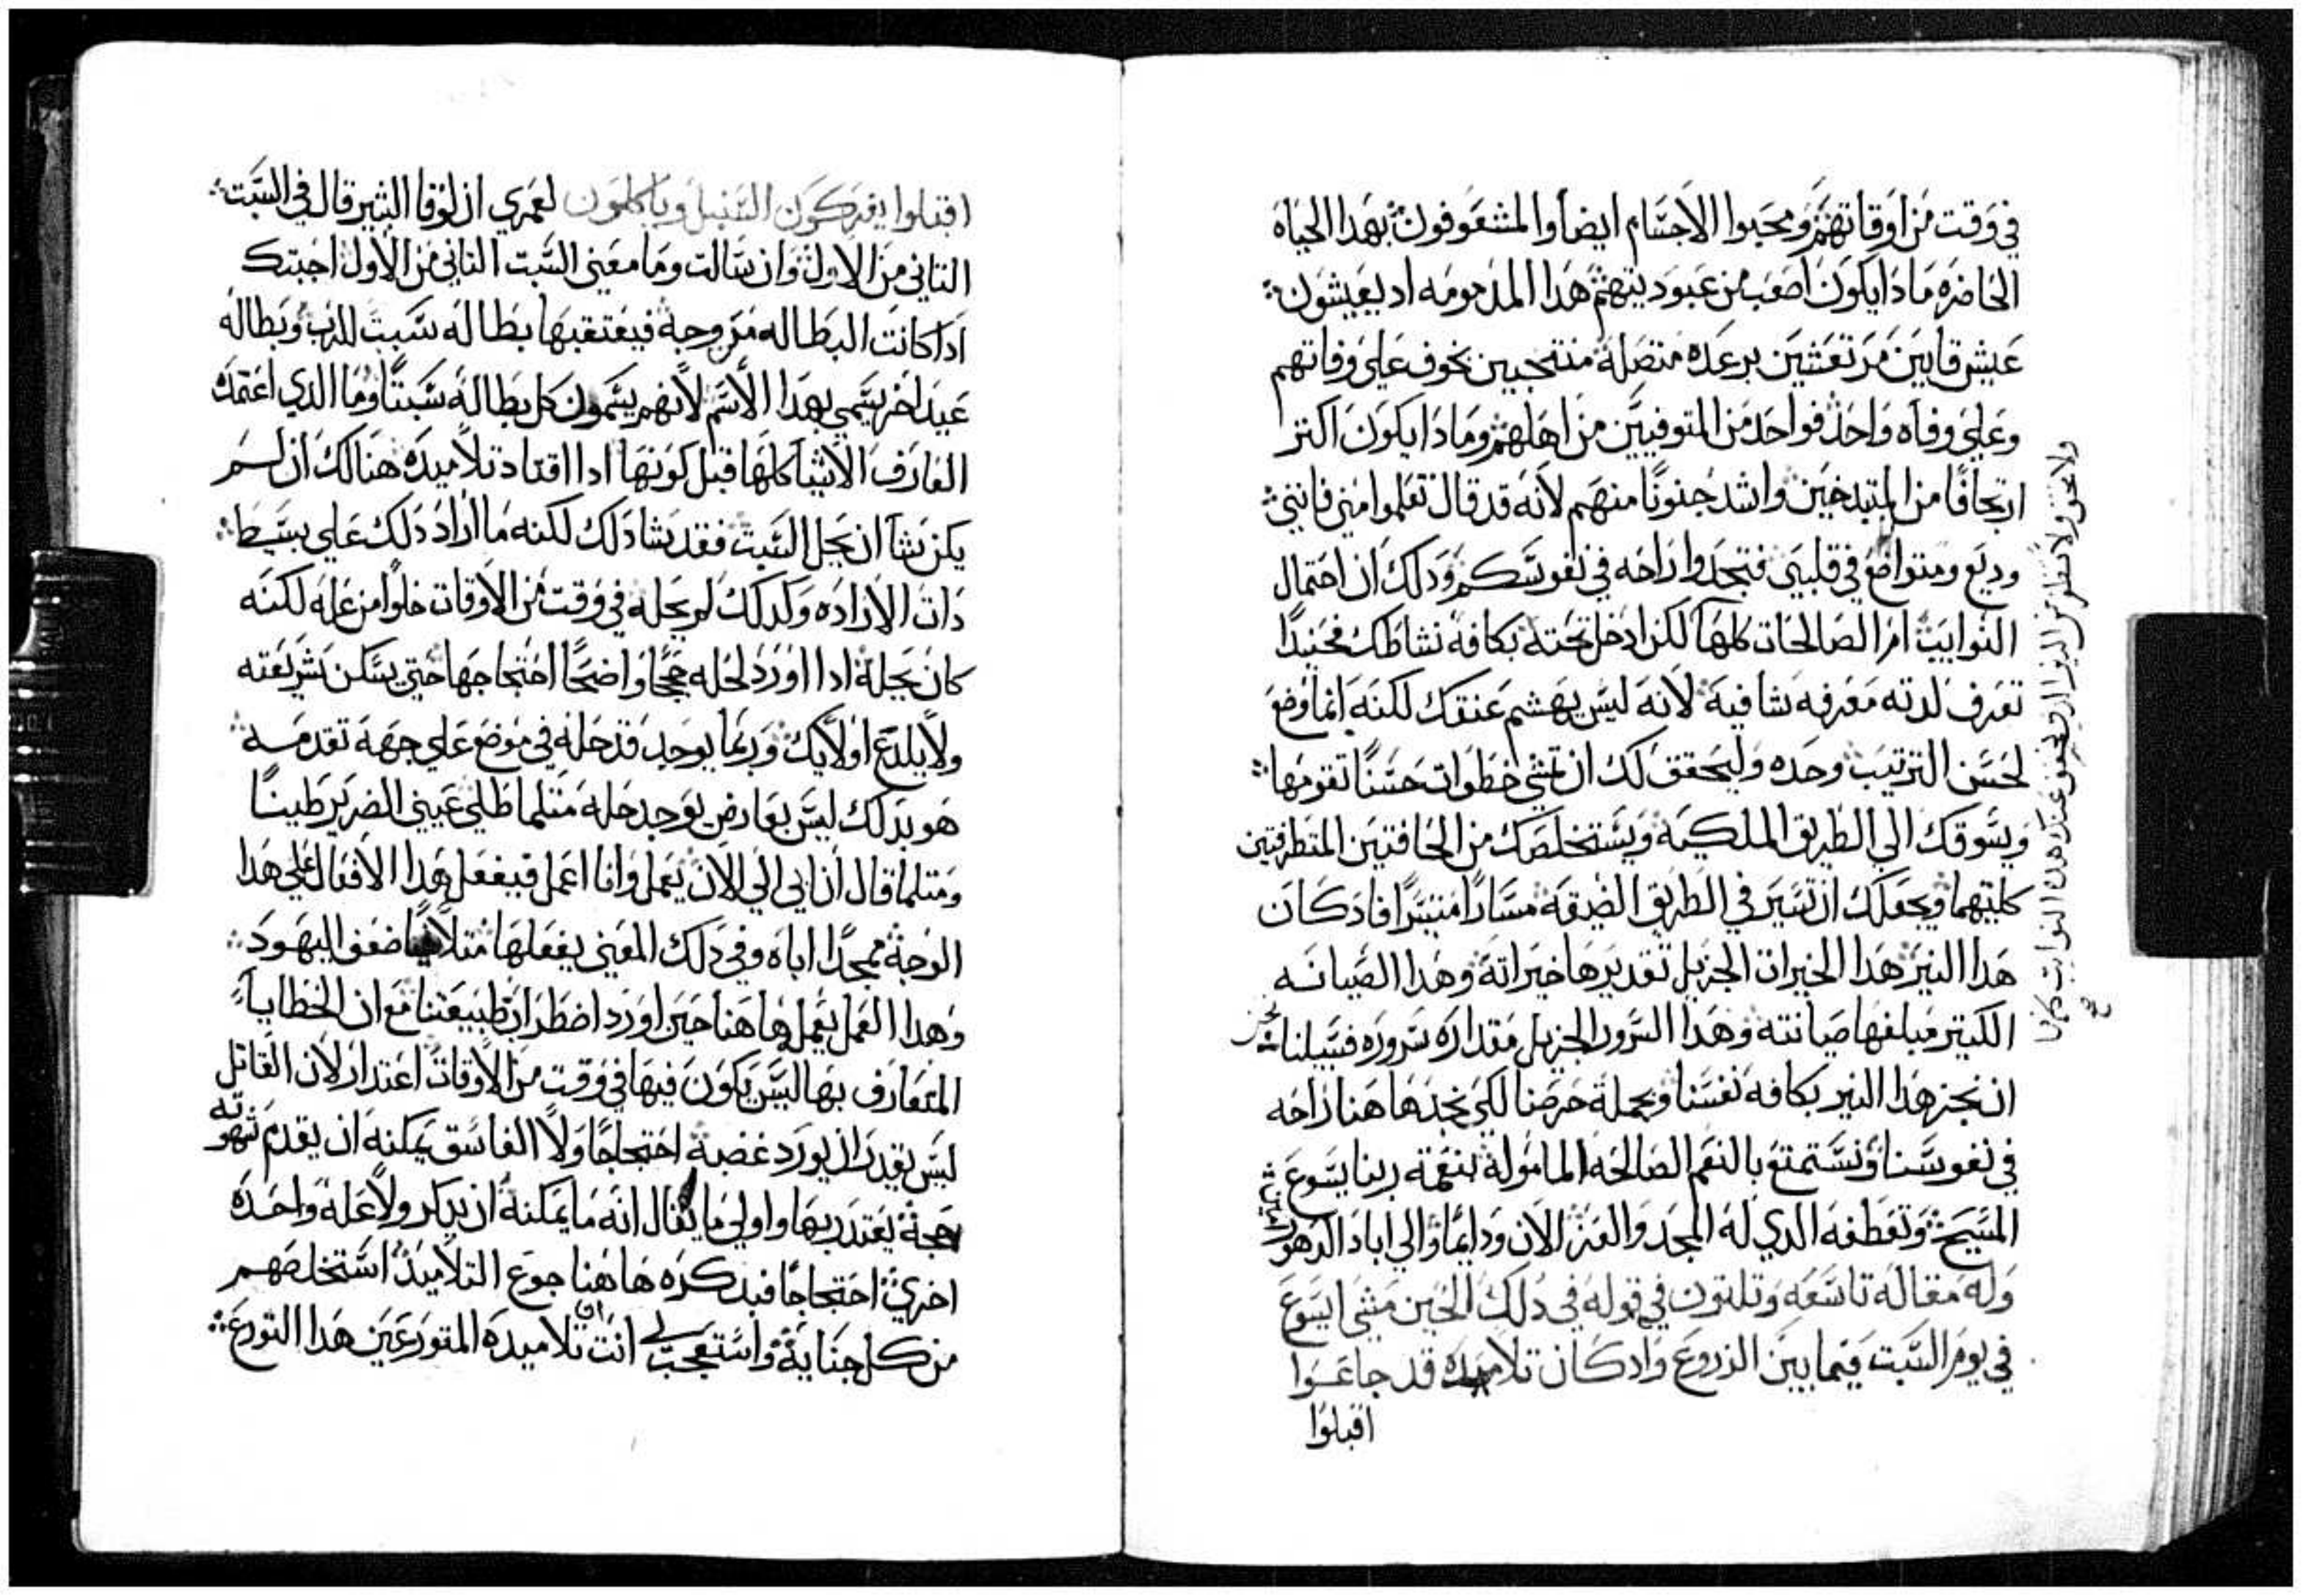 في وقت من اوقاتهم ومحبوا الاجسام ايضا والمشغوفون بهدا الحياه
الحاضره مادا يكون اصعب من عبوديتهم هدا المدمومه اد يعيشون
عيش قايين مرتعشين برعده متصله منتحبين بخوف علي وفاتهم
وعلي وفاه واحد فواحد من المتوفيين من اهلهم ومادا يكون اكتر
ارتجافا من المتبدخين واشد جنونا منهم لانه قد قال تعلموا مني فانني
وديع ومتواضع في قلبي فتجدوا راحه في نفوسكم ودلك ان احتمال
النوايب ام الصالحات كلها لكن ادخل تحته بكافة نشاطك فحنيدا
تعرف لدته معرفه شافيه لانه ليس يهشم عنقك لكنه انما وضع
لحسن الترتيب وحده وليحقق لك ان تمشي خطوات حسنا تقومها
ويسوقك الي الطريق الملكيه ويستخلصك من الحافتين المتطرفتين
كليتهما ويجعلك ان تسير في الطريق الضيقه مسارا متيسرا فاد كان
هدا النير هدا الخيرات الجزيل تقديرها خيراته وهدا الصيانه
الكتير مبلغها صيانته وهدا السرور الجزيل مقداره سروره فسبيلنا نحن
ان نجز هدا النير بكافه نفسنا وبجملة حرصنا لكي نجد هاهنا راحه
في نفوسنا ونستمتع بالنعم الصالحه المامولة بنعمة ربنا يسوع
المسيح وتعطفه الدي له المجد والعز الان ودايما والي اباد الدهور امين
وله مقاله تاسعه وتلتون في قوله في دلك الحين مشي ايسوع
في يوم السبت فيما بين الزروع واد كان تلاميده قد جاعوا
اقبلوا
ولا تحزن ولا تنفر من النوايب كلها
اقبلوا يفركون السنبل وياكلون لعمري ان لوقا البشير قال في السبت
التاني من الاول وان سالت وما معني السبت التاني من الاول اجبتك
ادا كانت البطاله مزوجة فيعتقبها بطاله سبت للرب وبطاله
عيد اخر يسمي بهدا الاسم لانهم يسمون كل بطاله سبتا وما الدي اعتمده
العارف الاشيا كلها قبل كونها ادا اقتاد تلاميده هنالك ان لم
يكن يشا ان يحل السبت فقد يشا دلك لكنه ما اراد دلك علي بسيط
دات الاراده وكدلك لم يحله في وقت من الاوقات خلوا من عله لكنه
كان يحله ادا اورد لحله حججا واضحا احتجاجها حتي يسكن شريعته
ولا يلدع اولايك وربما يوجد قد حله في موضع علي جهة تقدمه
هو بدلك ليس بعارض يوجد حله متلما طلي عيني الضرير طينا
ومتلما قال ان ابي الي الان يعمل وانا اعمل فيفعل هدا الافعال علي هدا
الوجه ممجدا اباه وفي دلك المعني يفعلها متلافيا ضعف اليهود
وهدا العمل يعمل هاهنا حين اورد اضطرار طبيعتنا مع ان الخطايا
المتعارف بها ليس يكون فيها في وقت من الاوقات اعتدار لان القاتل
ليس يقدر ان يورد غضبه احتجاجا ولا الفاسق يمكنه ان يقدم شهوته
حجة يعتدر بها واولي ما يقال انه ما يمكنه ان يدكر ولا علة واحده
اخري احتجاجا فبدكره هاهنا جوع التلاميد استخلصهم
من كل جنايه واستعجب لي انت ان تلاميده المتورعين هدا التورع